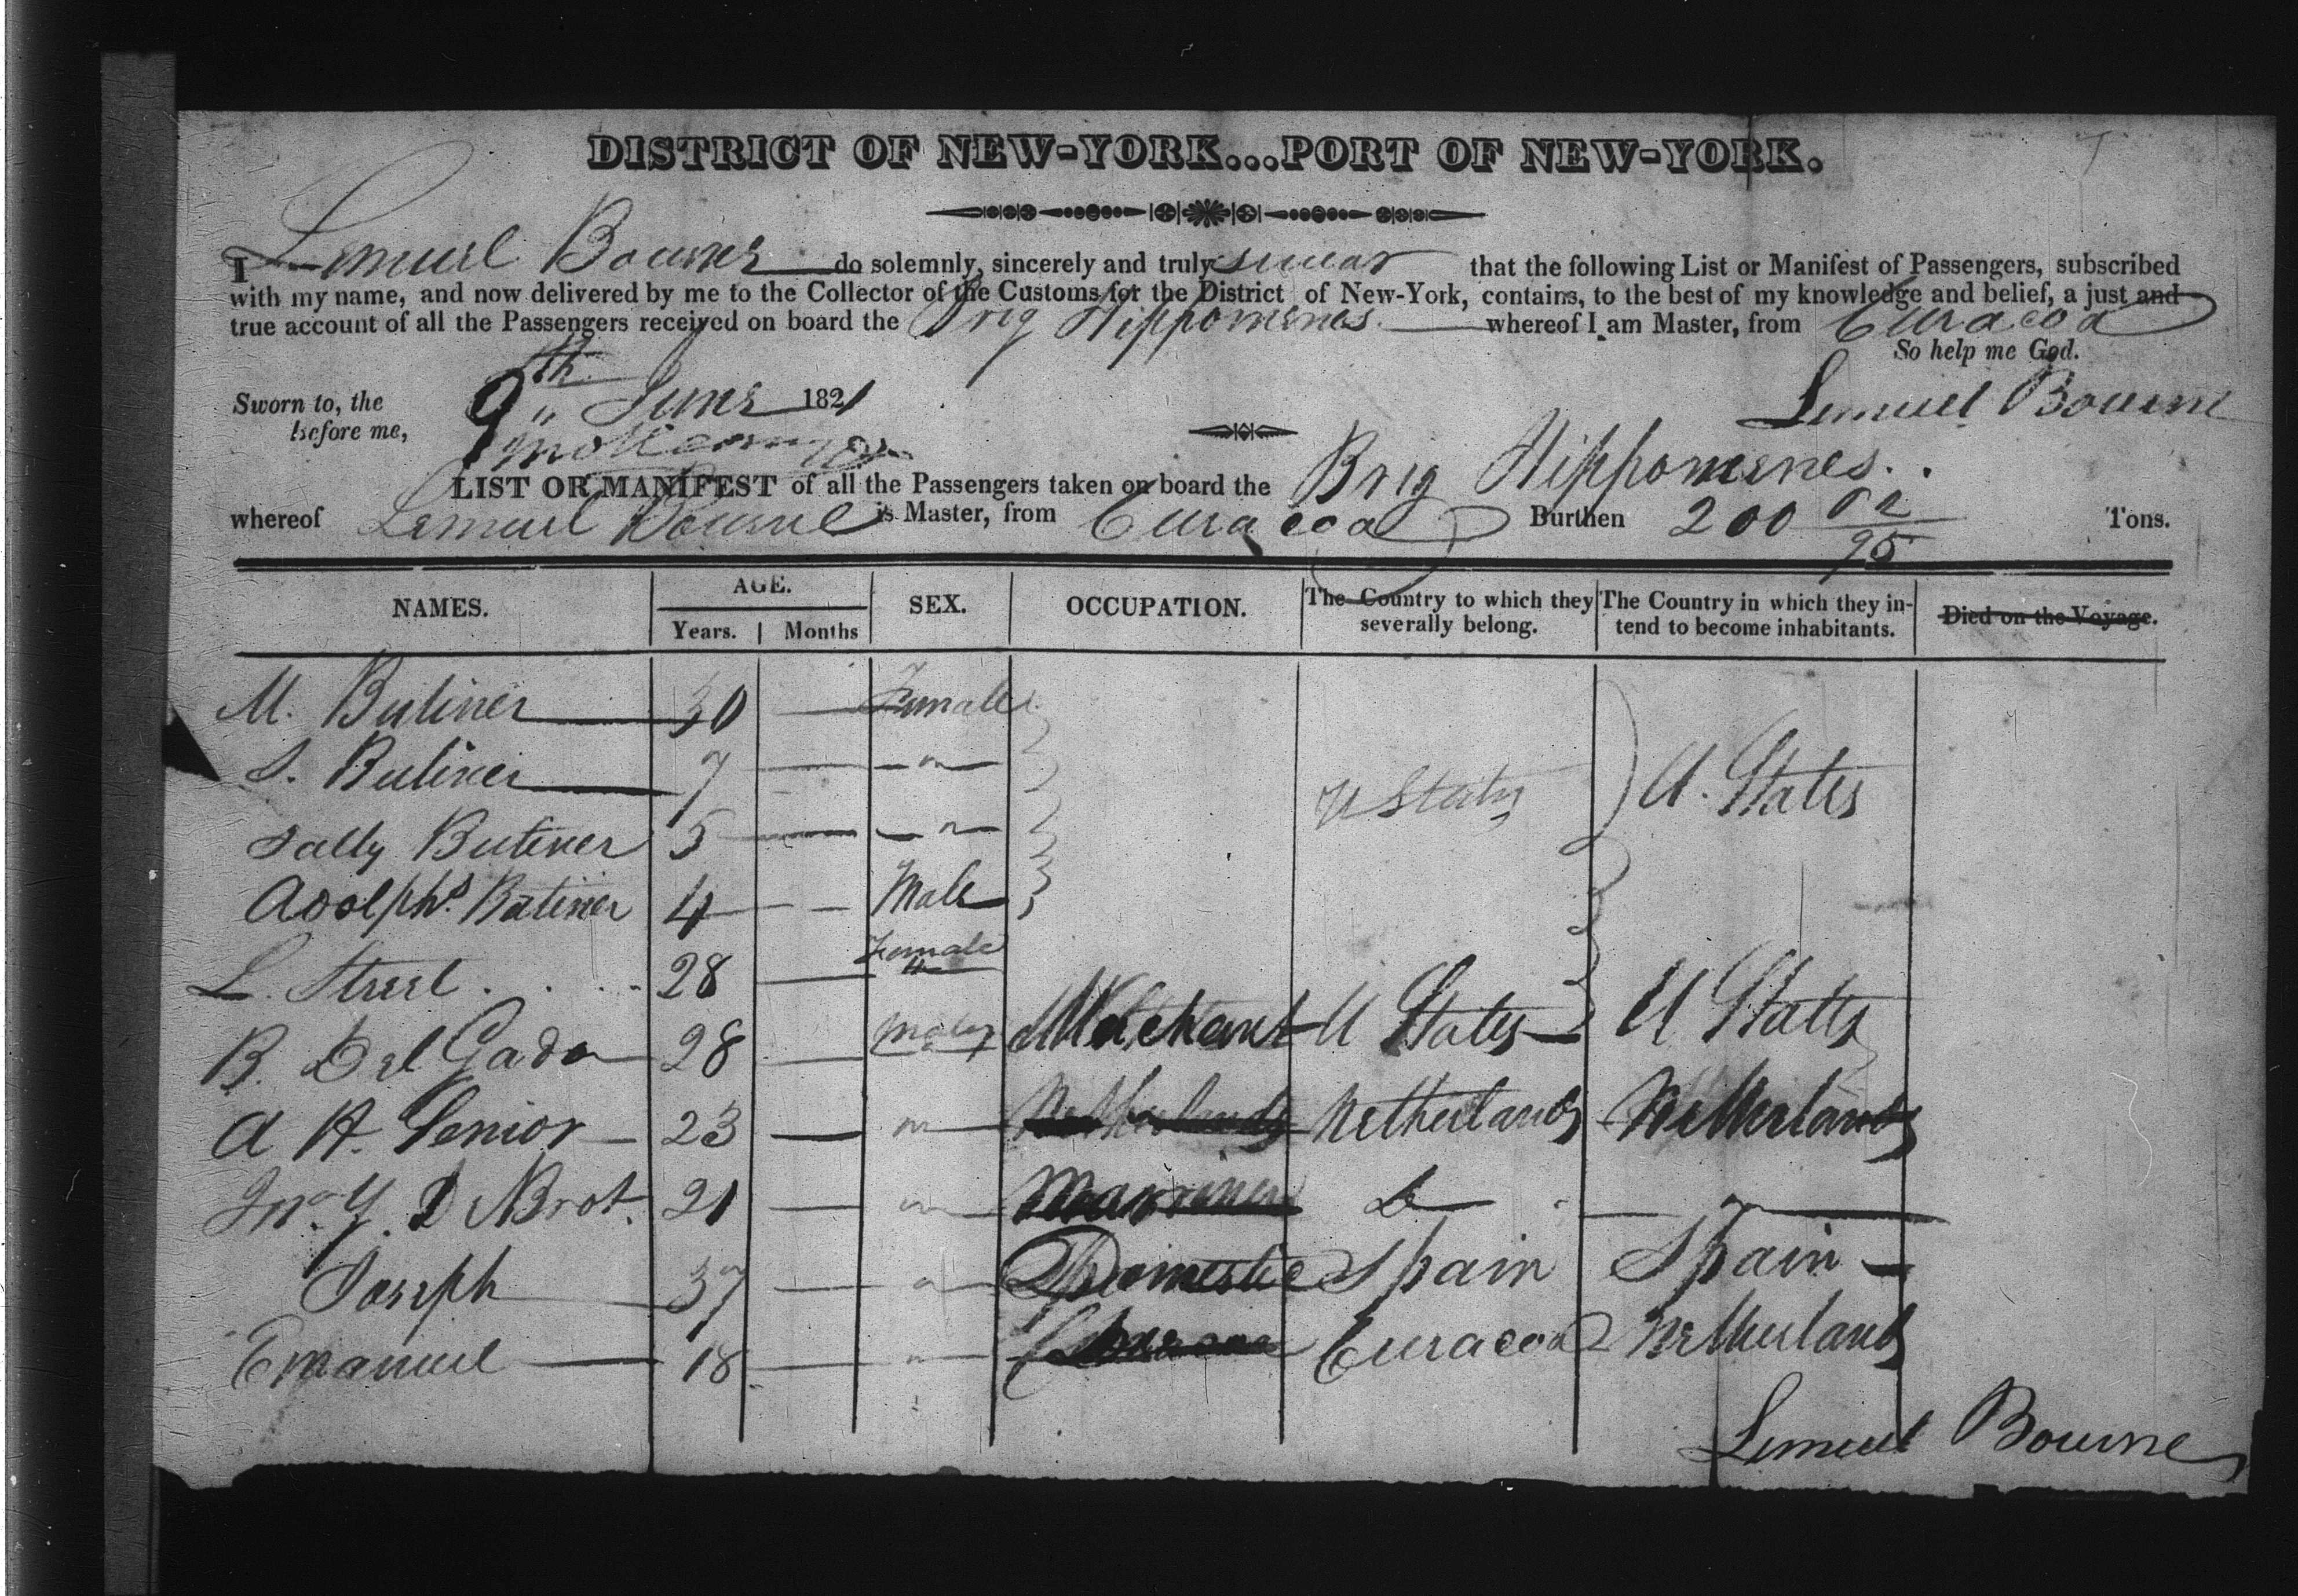 DISTRICT OF NEW-YORK...PORT OF NEW-YORK.
I Lemuel Bourne do solemnly, sincerely and truly swear that the following List or Manifest of Passengers, subscribed
with my name, and now delivered by me to the Collector of the Customs for the District of New-York, contains, to the best of my knowledge and belief, a just and
true account of all the Passengers received on board the Brig Hippomenes. whereof I am Master, from Curacoa
So help me God.
Sworn to, the 9th June 1821
before me,
Lemuel Bourne
LIST OR MANIFEST of all the Passengers taken on board the Brig Hippomenes.
whereof Lemuel Bourne is Master, from Curacoa Burthen 200 02/95 Tons.
NAMES. AGE. Years. Months SEX. OCCUPATION. The Country to which they severally belong. The Country in which they intend to become inhabitants. Died on the Voyage.
M. Butiner 30 — Female
S. Butiner 7 — — " — U States U. States
Sally Butiner 5 — — " —
Adolphs. Butiner 4 — — Male
L. Street 28 — Female
R. Del Gado 28 — Male Merchant U States U States
A H. Senior 23 — " Netherlands Netherlands Netherlands
Jno. Y. D NBrot. 21 — " Marriner Do —
Joseph 37 — " Domestic Spain Spain
Emanuel 18 — " Curacoa Netherlands
Lemuel Bourne